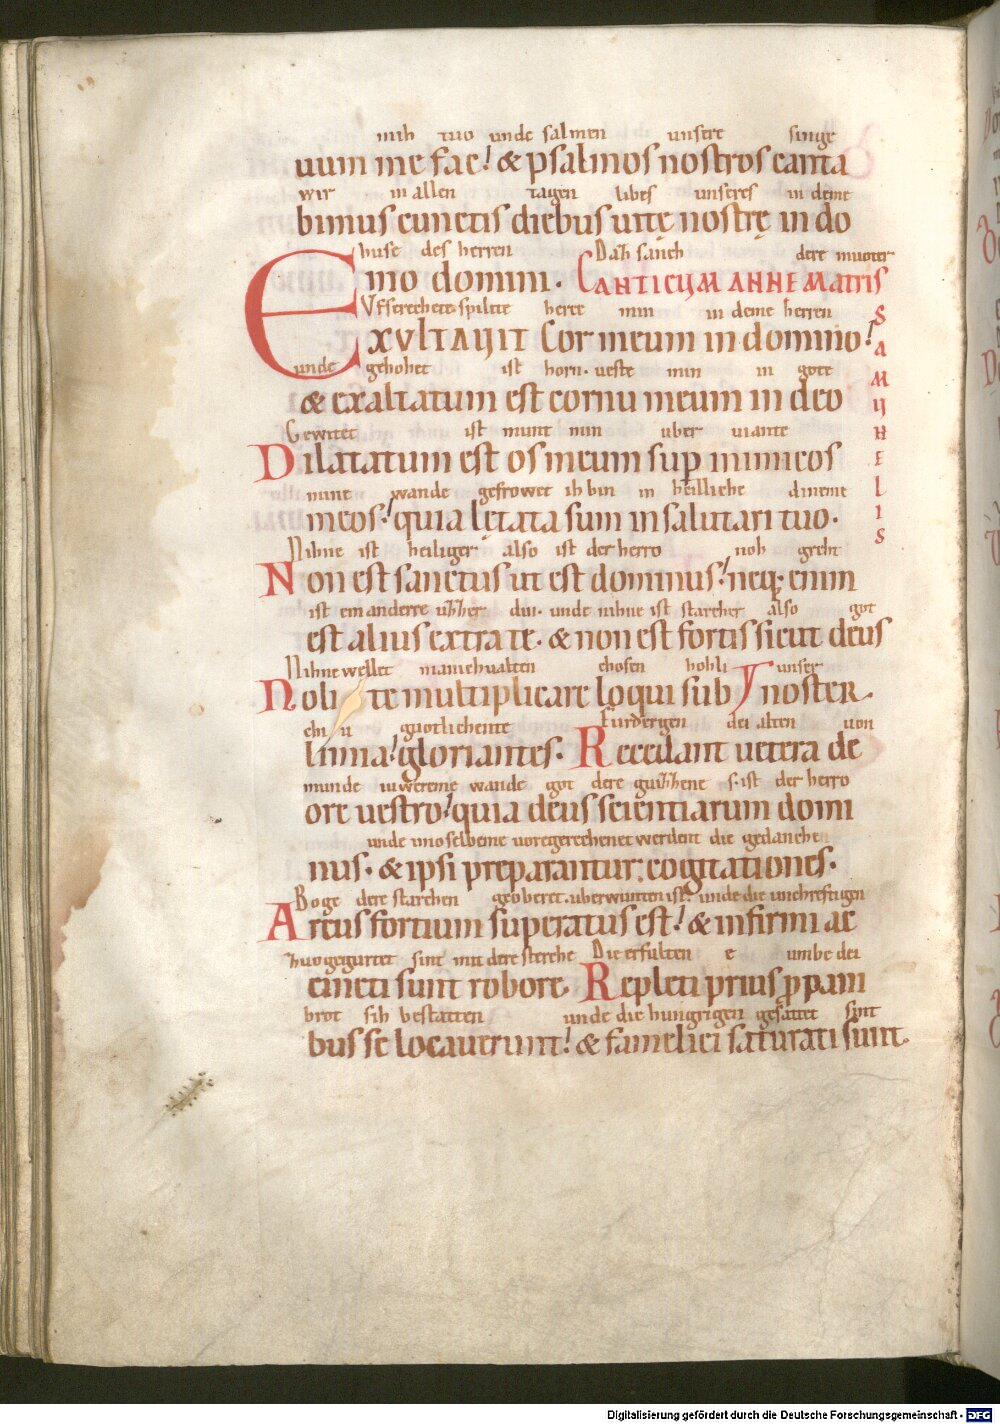 mih tuo unde salmen unsere singe
uum me fac! & psalmos nostros canta
wir in allen tagen libes unseres in deme
bimus cunctis diebus uitę nostrę in do
huse des herren Daz sanch dere muoter
mo domini. CANTICUM ANNE MATRIS
Ufscrechete spilite herce min in deme herren
EXVLTAVIT Cor meum in domino!
SAMUHELIS
unde gehohet ist horn. ueste min in gote
& exaltatum est cornu meum in deo
Gewitet ist munt min uber uiante
Dilatatum est os meum sup inimicos
mine wande gefrowet ih bin in heilliche dineme
meos! quia lętata sum in salutari tuo.
Nihne ist heiliger also ist der herro noh geeht
Non est sanctus ut est dominus! neq; enim
ist ein anderre din. unde nihne ist starcher also got
est alius extra te. & non est fortis sicut deus
Nihne wellet manichualten chosen hohli unser
Nolite multiplicare loqui sub noster.
chi u guotlichente Furdergen dei alten uon
limia! gloriantes. Recedant uetera de
munde iuwereme wande got dere s. ist der herro
ore uestro! quia deus scientiarum domi
unde imo selbeme uoregerechenet werdent die gedanchen
nus. & ipsi preparantur cogitationes.
Boge dere starchen geoberet. uberwunten ist. unde die unchreftigen
Arcus fortium superatus est! & infirmi ac
zuogegurtet sint mit dere sterche Die erfulten e umbe dei
cincti sunt robore. Repleti prius p pani
brot sih bestatten unde die hungrigen gesattet sint
bus se locauerunt! & famelici saturati sunt.
Digitalisierung gefördert durch die Deutsche Forschungsgemeinschaft - DFG